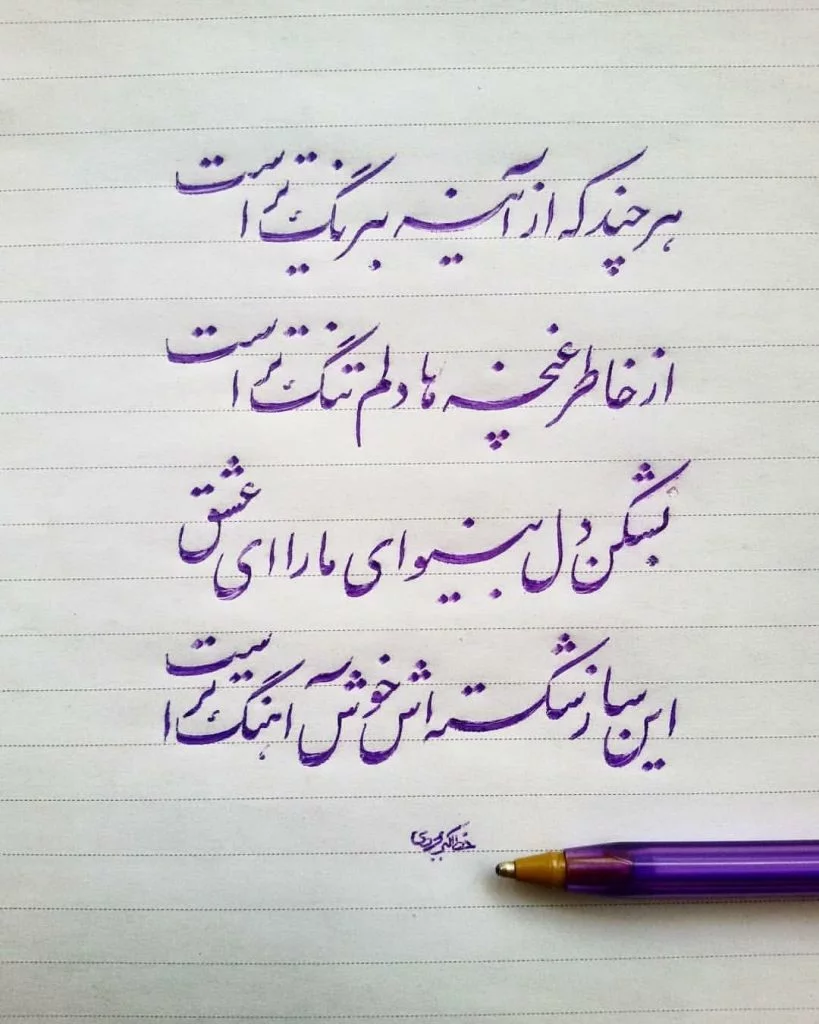 هرچند که از آینه بیرنگ تر است
از خاطر غنچه ها دلم تنگ تر است
بشکن دل بینوای ما را ای عشق
این ساز شکسته اش خوش آهنگ تر است
خط اکبر